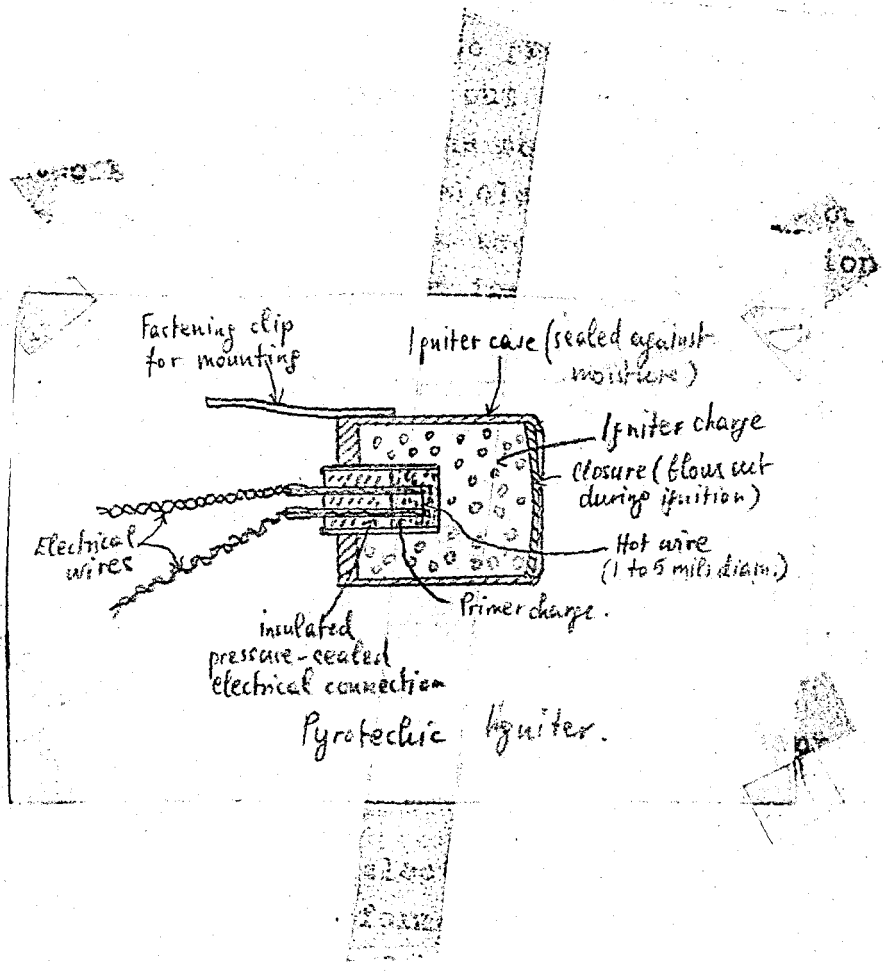 Fastening clip
for mounting
Igniter case (sealed against
moisture)
Igniter charge
closure (blows out
during ignition)
Hot wire
(1 to 5 mils diam.)
Primer charge.
Electrical
wires
insulated
pressure-sealed
electrical connection
Pyrotechic Igniter.
ion